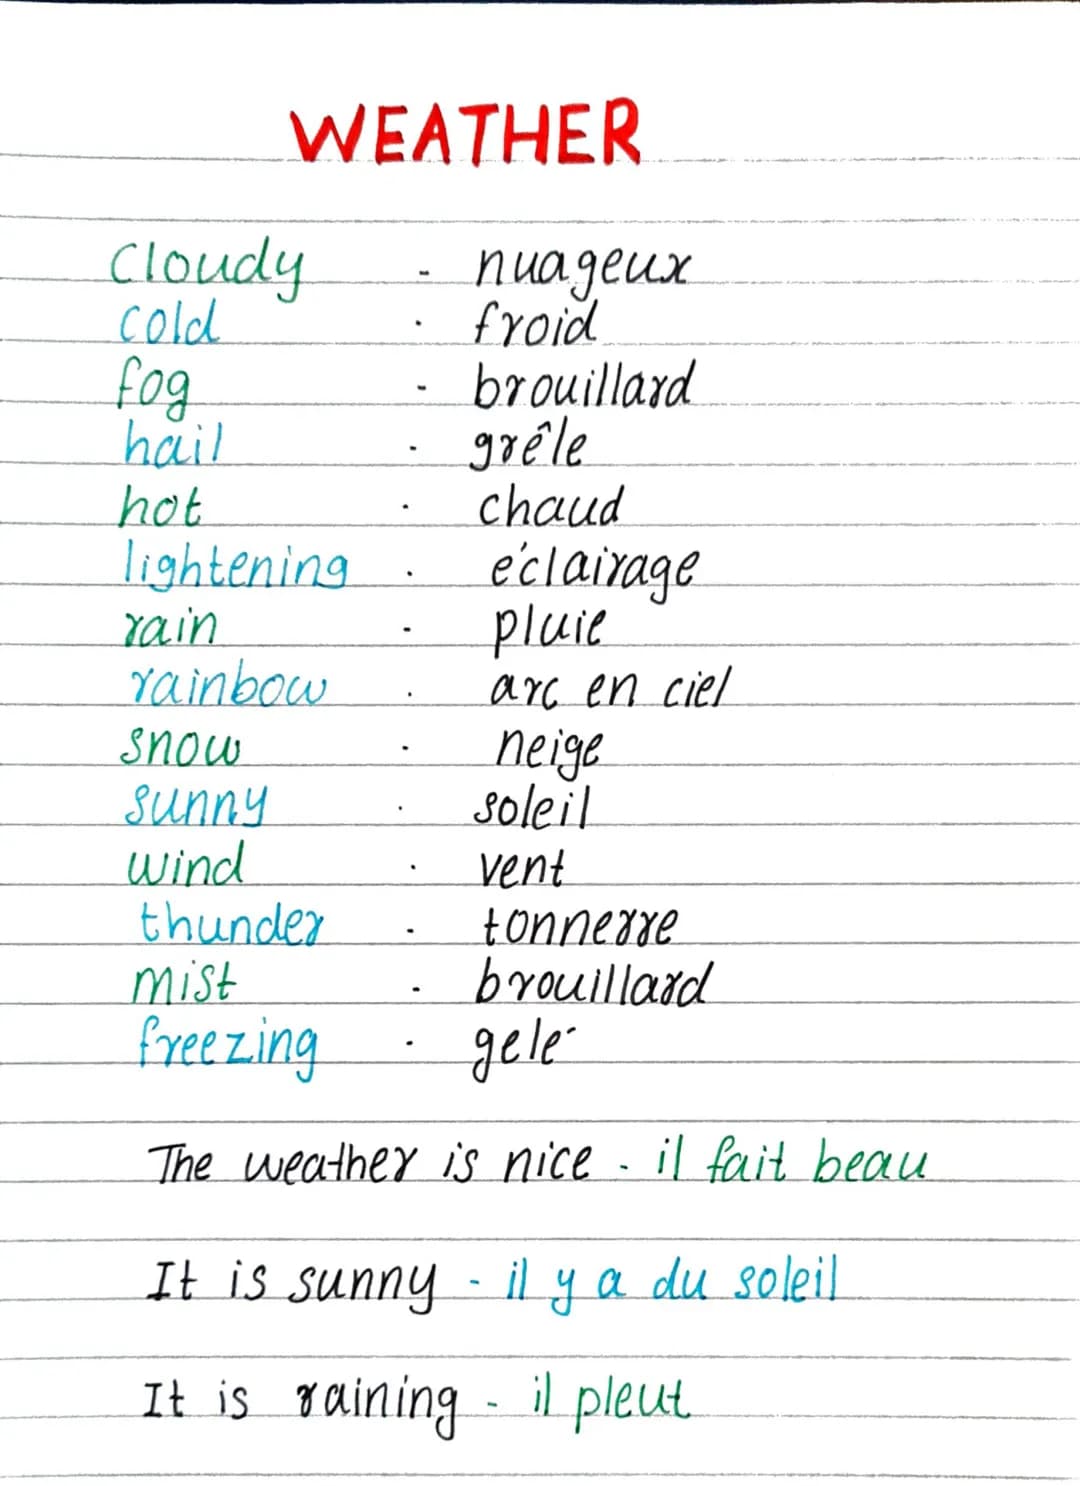 WEATHER
Cloudy - nuageux
cold - froid
fog - brouillard
hail - grêle
hot - chaud
lightening - éclairage
rain - pluie
rainbow - arc en ciel
snow - neige
sunny - soleil
wind - vent
thunder - tonnerre
mist - brouillard
freezing - gelé
The weather is nice - il fait beau
It is sunny - il y a du soleil
It is raining - il pleut